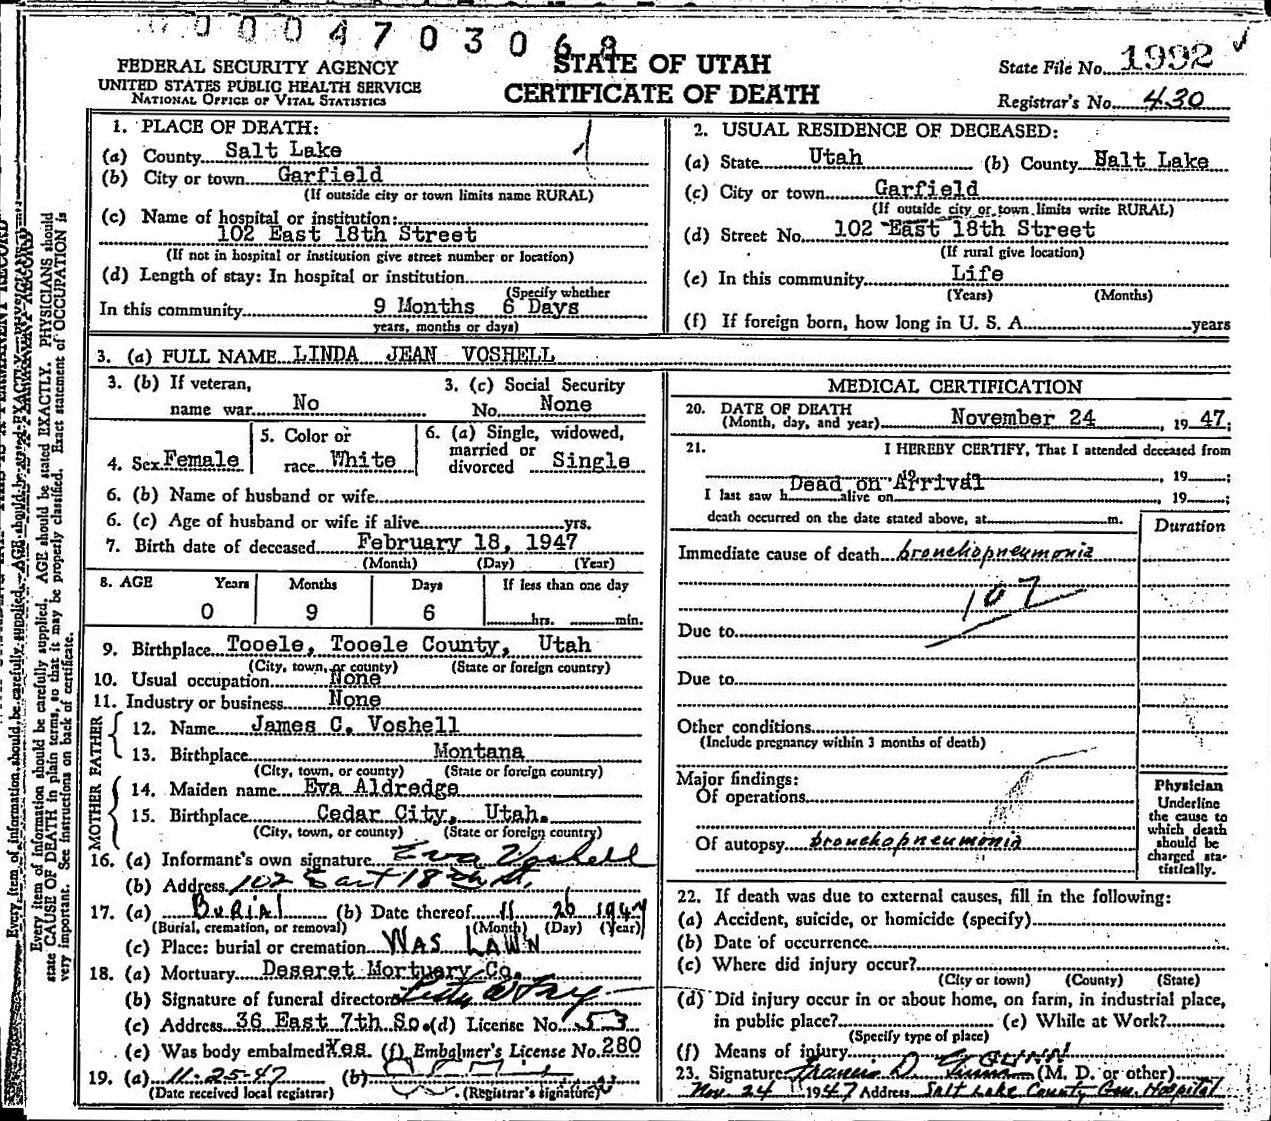 0004703068
STATE OF UTAH
CERTIFICATE OF DEATH
FEDERAL SECURITY AGENCY
UNITED STATES PUBLIC HEALTH SERVICE
NATIONAL OFFICE OF VITAL STATISTICS
State File No. 1992
Registrar's No. 430
1. PLACE OF DEATH:
(a) County Salt Lake
(b) City or town Garfield
(If outside city or town limits name RURAL)
(c) Name of hospital or institution:
102 East 18th Street
(If not in hospital or institution give street number or location)
(d) Length of stay: In hospital or institution
(Specify whether
In this community 9 Months 6 Days
years, months or days)
2. USUAL RESIDENCE OF DECEASED:
(a) State Utah (b) County Salt Lake
(c) City or town Garfield
(If outside city or town limits write RURAL)
(d) Street No. 102 East 18th Street
(If rural give location)
(e) In this community Life
(Years) (Months)
(f) If foreign born, how long in U. S. A. years
3. (a) FULL NAME LINDA JEAN VOSHELL
3. (b) If veteran,
name war No
3. (c) Social Security
No. None
4. Sex Female
5. Color or
race White
6. (a) Single, widowed,
married or
divorced Single
6. (b) Name of husband or wife
6. (c) Age of husband or wife if alive yrs.
7. Birth date of deceased February 18, 1947
(Month) (Day) (Year)
8. AGE Years Months Days If less than one day
0 9 6 hrs. min.
9. Birthplace Tooele, Tooele County, Utah
(City, town, or county) (State or foreign country)
10. Usual occupation None
11. Industry or business None
FATHER
12. Name James C. Voshell
13. Birthplace Montana
(City, town, or county) (State or foreign country)
MOTHER
14. Maiden name Eva Aldredge
15. Birthplace Cedar City, Utah.
(City, town, or county) (State or foreign country)
16. (a) Informant's own signature Eva Voshell
(b) Address 102 East 18th St.
17. (a) BURIAL (b) Date thereof 11 26 1947
(Burial, cremation, or removal) (Month) (Day) (Year)
(c) Place: burial or cremation WAS LAWN
18. (a) Mortuary Deseret Mortuary Co.
(b) Signature of funeral director
(c) Address 36 East 7th So. (d) License No. 53
(e) Was body embalmed Yes. (f) Embalmer's License No. 280
19. (a) 11-25-47 (b)
(Date received local registrar) (Registrar's signature)
MEDICAL CERTIFICATION
20. DATE OF DEATH
(Month, day, and year) November 24, 1947;
21. I HEREBY CERTIFY, That I attended deceased from
Dead on Arrival, 19 ;
I last saw h alive on , 19 ;
death occurred on the date stated above, at m.
Duration
Immediate cause of death bronchopneumonia
107
Due to
Due to
Other conditions
(Include pregnancy within 3 months of death)
Major findings:
Of operations
Of autopsy bronchopneumonia
Physician
Underline
the cause to
which death
should be
charged sta-
tistically.
22. If death was due to external causes, fill in the following:
(a) Accident, suicide, or homicide (specify)
(b) Date of occurrence
(c) Where did injury occur?
(City or town) (County) (State)
(d) Did injury occur in or about home, on farm, in industrial place,
in public place? (e) While at Work?
(Specify type of place)
(f) Means of injury
23. Signature Francis D. (M. D. or other)
Nov. 24 1947 Address Salt Lake County Gen. Hospital
Every item of information should be carefully supplied. AGE should be stated EXACTLY. PHYSICIANS should
state CAUSE OF DEATH in plain terms, so that it may be properly classified. Exact statement of OCCUPATION is
very important. See instructions on back of certificate.